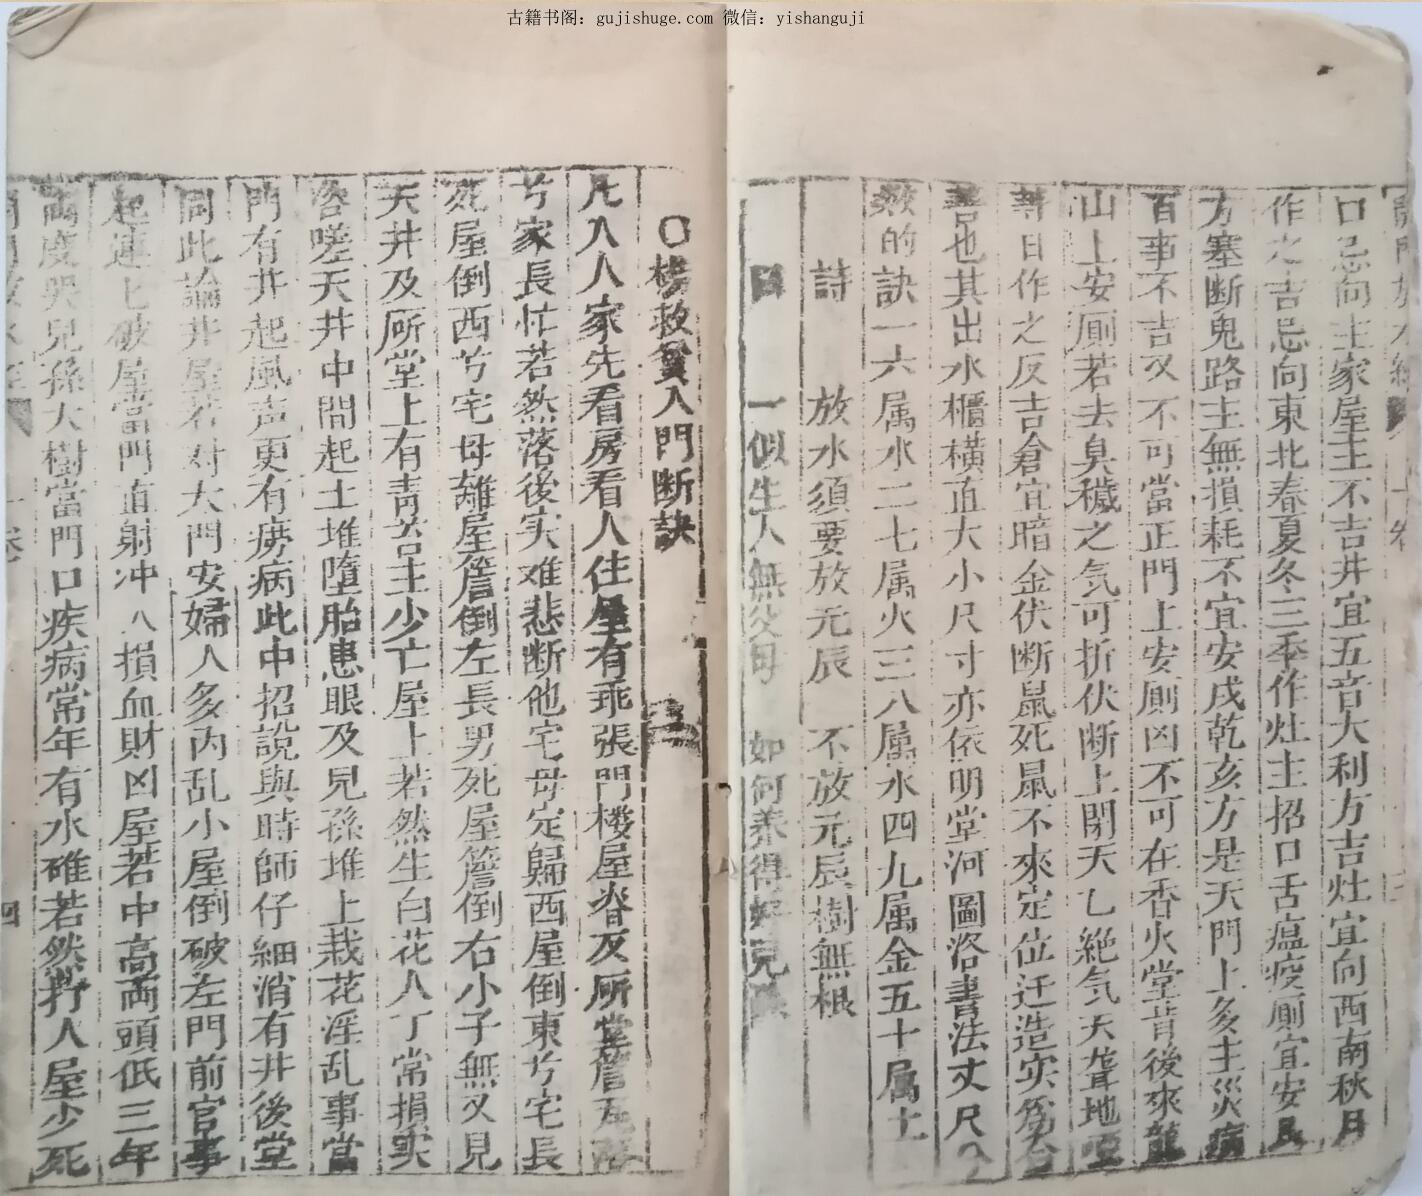 古籍书阁：gujishuge.com 微信：yishanguji
口忌向主家屋主不吉井宜五音大利方吉灶宜向西南秋月
作之吉忌向東北春夏冬三季作灶主招口舌瘟疫厕宜安
方塞断鬼路主無損耗不宜安戌乾亥方是天門上多主災病
百事不吉又不可當正門上安厠凶不可在香火堂背後來龍
山上安厠若去臭穢之気可折伏断上閉天乙絶気天聋地
日作之反吉倉宜暗金伏断鼠死鼠不來定位迁造实為台
也其出水櫃橫直大小尺寸亦依明堂河圖洛書法丈尺
的訣一六属水二七属火三八属水四九属金五十属土
詩 放水須要放元辰 不放元辰樹無根
一似生人無父母 如何养得好兒孫
〇楊救貧入門断訣
凡入人家先看房看人住屋有乖張門楼屋脊及厛堂簷
兮家長忙若然落後实难悲断他宅母定歸西屋倒東兮宅長
死屋倒西兮宅母離屋簷倒左長男死屋簷倒右小子無又見
天井及厛堂上有靑苔主少亡屋上若然生白花人丁常損
嗟天井中間起土堆墮胎患眼及兒孫堆上栽花淫乱事當
門有井起風声更有痨病此中招說與時師仔細消有井後堂
同此論井屋若对大門安婦人多内乱小屋倒破左門前官事
起連七破屋當門直射冲八損血財凶屋若中高両頭低三年
両度哭兒孫大樹當門口疾病常年有水碓若然打人屋少死
四